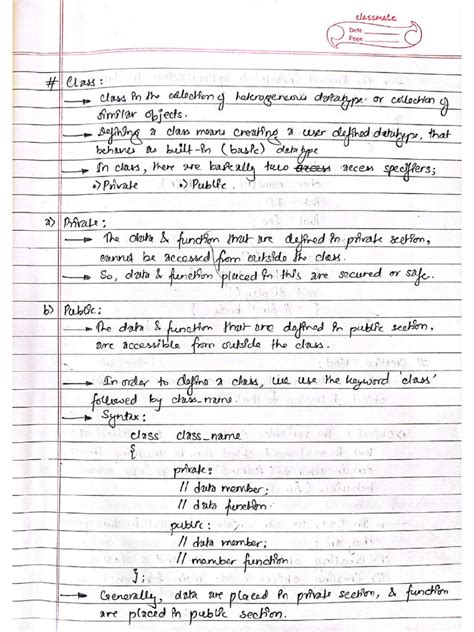 classmate
Date
Page
# Class:
→ Class in the collection of heterogeneous datatype or collection of
similar objects.
→ Defining a class means creating a user defined datatype, that
behaves as built-in (basic) data type
→ In class, there are basically two access access specifiers;
•) Private •) Public.
a) Private:
→ The data & function that are defined in private section,
cannot be accessed from outside the class.
→ So, data & function placed in this are secured or safe.
b) Public:
→ The data & function that are defined in public section,
are accessible from outside the class.
→ In order to define a class, we use the keyword class'
followed by class_name.
→ Syntax:
class class_name
{
private:
// data member;
// data function
public:
// data member;
// member function
};
→ Generally, data are placed in private section, & function
are placed in public section.